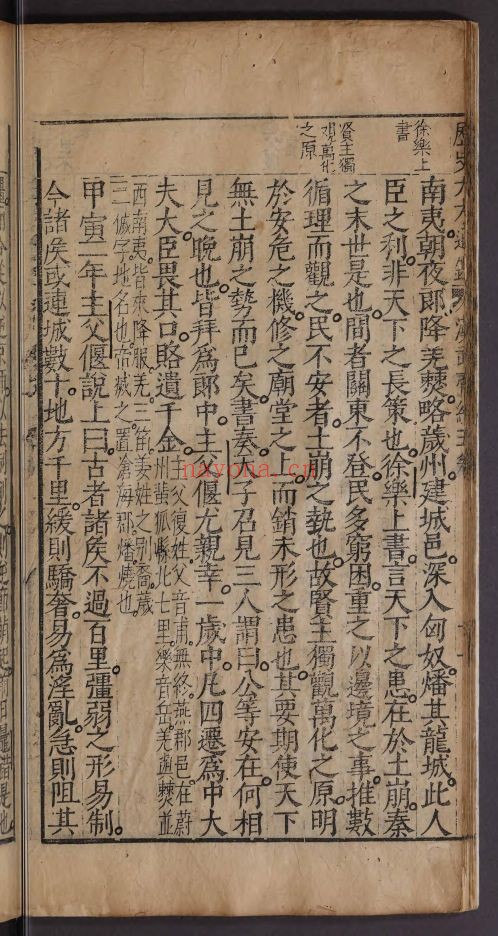 徐樂上
書
賢主獨
觀萬化
之原
南夷朝夜郎降羌僰略薉州建城邑深入匈奴燔其龍城此人
臣之利非天下之長策也徐樂上書言天下之患在於土崩秦
之末世是也間者關東不登民多窮困重之以邊境之事推數
循理而觀之民不安者土崩之埶也故賢主獨觀萬化之原明
於安危之機修之廟堂之上而銷未形之患也其要期使天下
無土崩之勢而已矣書奏天子召見三人謂曰公等安在何相
見之晚也皆拜爲郎中主父偃尤親幸一歲中凡四遷爲中大
夫大臣畏其口賂遺千金
主父復姓父音甫無終燕郡邑在蔚
州飛狐縣北七里樂音岳羌
西南夷皆來降服羌三苗姜姓之别裔薉
二僰字地名也帝滅之置滄海郡燔燒也
甲寅二年主父偃說上曰古者諸矦不過百里彊弱之形易制
今諸矦或連城數十地方千里緩則驕奢易爲淫亂急則阻其
nayona.cn